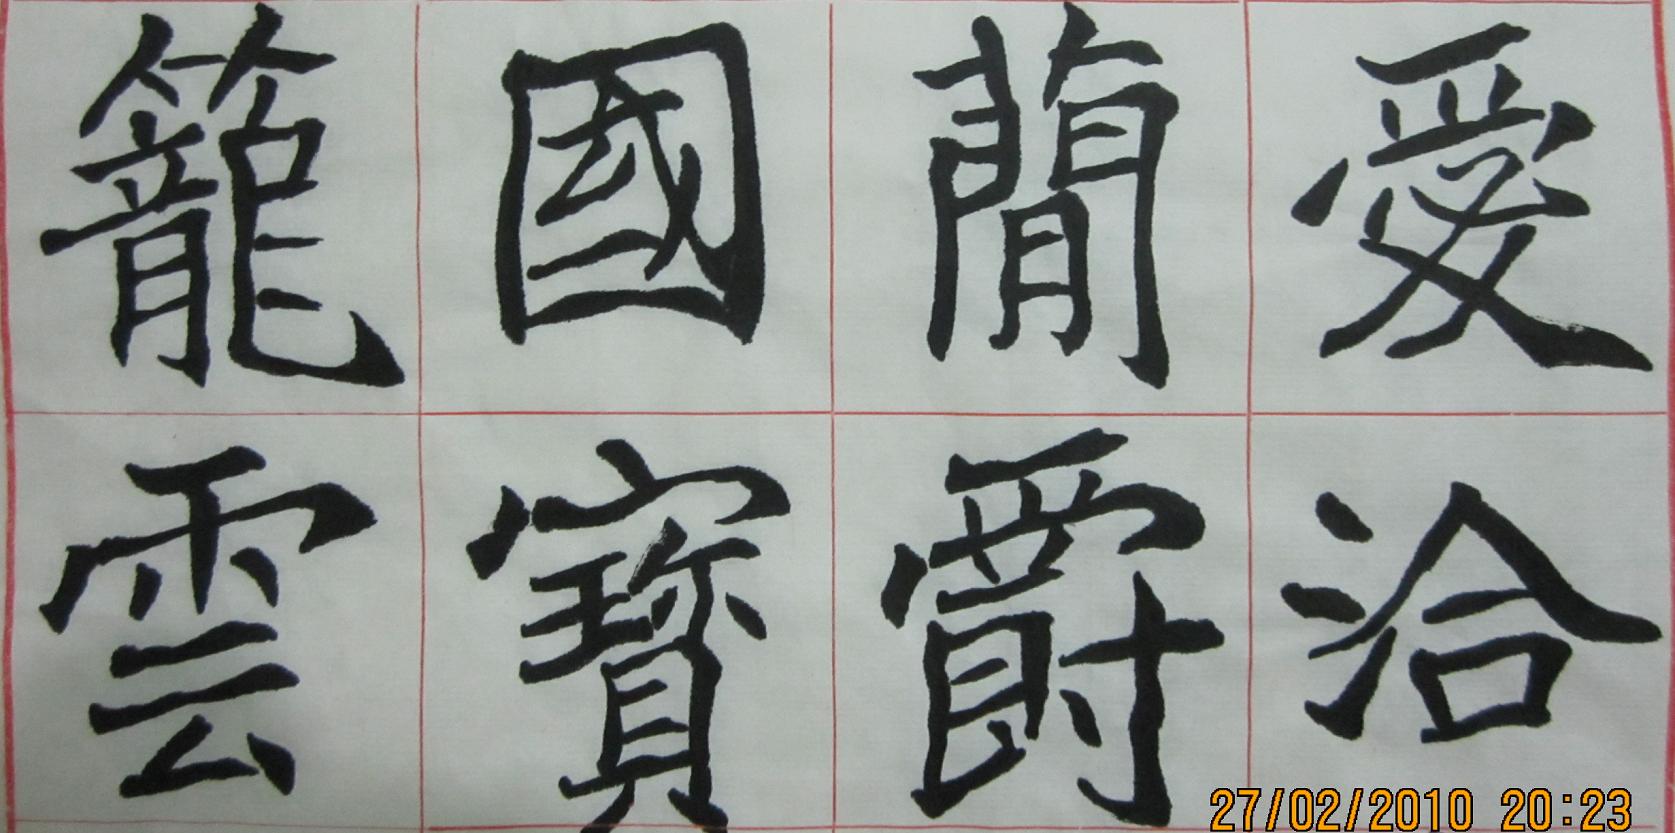 愛洽
蕳爵
國寶
籠雲
27/02/2010 20:23